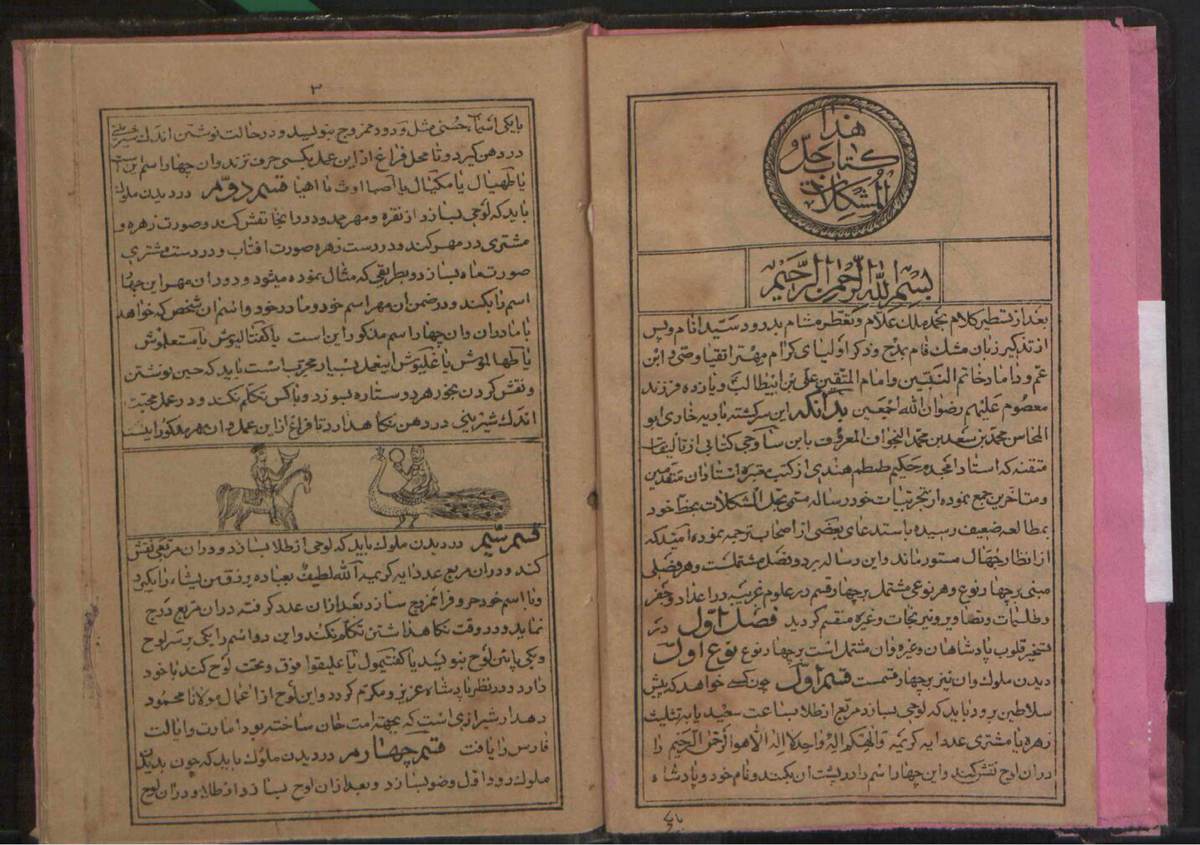 هذا
كتاب حل
المشكلات
بسم الله الرحمن الرحيم
بعد از تسطیر کلام بحمد ملك علام و تعطیر مشام بدرود سید انام و پس
از تذکیر زبان مشك فام بمدح و ذکر اولیای کرام مهتر اتقیا و وصی و ابن
عم و داماد خاتم النبیین و امام المتقین علی بن ابیطالب و یازده فرزند
معصوم علیهم رضوان الله اجمعین بدانکه این سرکشته بادیه خاری ابو
المحاسن محمد بن سعد بن محمد النخجوان المعروف بابن ساوجی کتابی از تالیفات
متقنه که استاد امجده حکیم طمطم هندی از کتب معتبره استادان متقدمین
و متاخرین جمع نموده از تجربیات خود رساله مسمی بحل المشکلات بخط خود
بمطالعه ضعیف رسیده باستدعای بعضی از اصحاب ترجمه نموده امید که
از انظار جهال مستور ماند و این رساله بر دو فصل مشتملست و هر فصلی
مبنی بر چهار نوع و هر نوعی مشتمل بر چهار قسم در علوم غریبه در اعداد و جفر
و طلسمات و تصاویر و نیرنجات و غیره منقسم کردید فصل اول در
تسخیر قلوب پادشاهان و غیره و ان مشتمل است بر چهار نوع نوع اول
دیدن ملوك و ان نیز بر چهار قسمت قسم اول چون کسی خواهد که پیش
سلاطین برود باید که لوحی بسازد مربع از طلا بساعت سعید یا به تثلیث
زهره با مشتری عدد ایه کریمه و الهکم اله واحد لا اله الا هو الرحمن الرحیم را
در ان لوح نقش کند و این چهار اسم را در پشت ان بکند و نام خود و پادشاه
۲
با یکی اسماء حسنی مثل ودود ممزوج بنویسد و در حالت نوشتن اندك
در دهن کیرد و تا محل فراغ از این عمل بکسی حرف نزند و ان چهار اسم
یا طهیال یا مکیال یا اصباوث یا اهیا قسم دوم در دیدن ملوك
باید که لوحی بسازد از نقره و مهر در انجا نقش کند و صورت زهره و
مشتری در مهر کند و در دست زهره صورت افتاب و در دست مشتری
صورت ماه بسازد و بطریقی که مثال نموده میشود و دور ان مهر این چهار
اسم را بکند و در ضمن ان مهر اسم خود و مادر خود و اسم ان شخص که خواهد
با مادر ان و ان چهار اسم مذکور این است
این عمل بسیار مجربست باید که حین نوشتن
و نقش کردن بخور هر دو ستاره بسوزد و با کس تکلم نکند و در عمل محبت
اندك شیرینی در دهن نکاهدارد تا فراغ از این عمل و ان مهر مذکور اینست
قسم سیم در دیدن ملوك باید که لوحی از طلا بسازد و در ان مربعی نقش
کند و در ان مربع عدد ایه کریمه الله لطیف بعباده یرزق من یشاء را بکیرد
و با اسم خود حروف امتزاج سازد بعد از ان عدد کرفته در ان مربع درج
نماید و در وقت نکاهداشتن تکلم نکند و این دو اسم را یکی بر سر لوح
و یکی پائین لوح بنویسد فوق و تحت لوح کند با خود
دارد و در نظر پادشاه عزیز و مکرم کردد و این لوح از اعمال مولانا محمود
دهدار شیرازی است که بجهة امت خان ساخته بود امارت و ایالت
فارس را یافت قسم چهارم در دیدن ملوك باید که چون بدیدن
ملوك رود اول وضو بسازد و بعد از ان لوح بسازد از طلا و در ان لوح